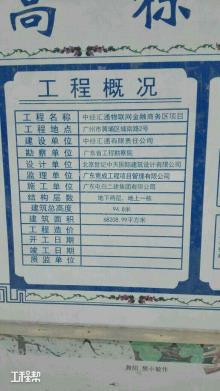 高 标
工程概况
工程名称 中经汇通物联网金融商务区项目
工程地点 广州市黄埔区城南路2号
建设单位 中经汇通有限责任公司
勘察单位 广东省工程勘察院
设计单位 北京世纪中天国际建筑设计有限公司
监理单位 广东竞成工程项目管理有限公司
施工单位 广东电白二建集团有限公司
结构层数 地下两层、地上一栋
建筑总高度 94.8米
建筑面积 68208.99平方米
工程造价
开工日期
竣工日期
质监单位
工程帮